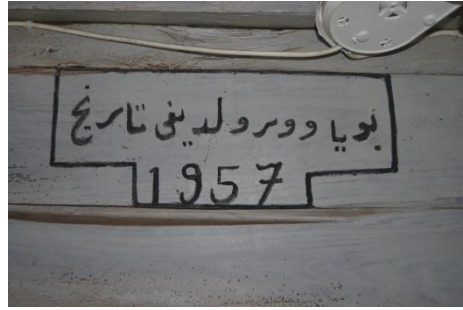 بويا وورولديغى تاريخ
1957